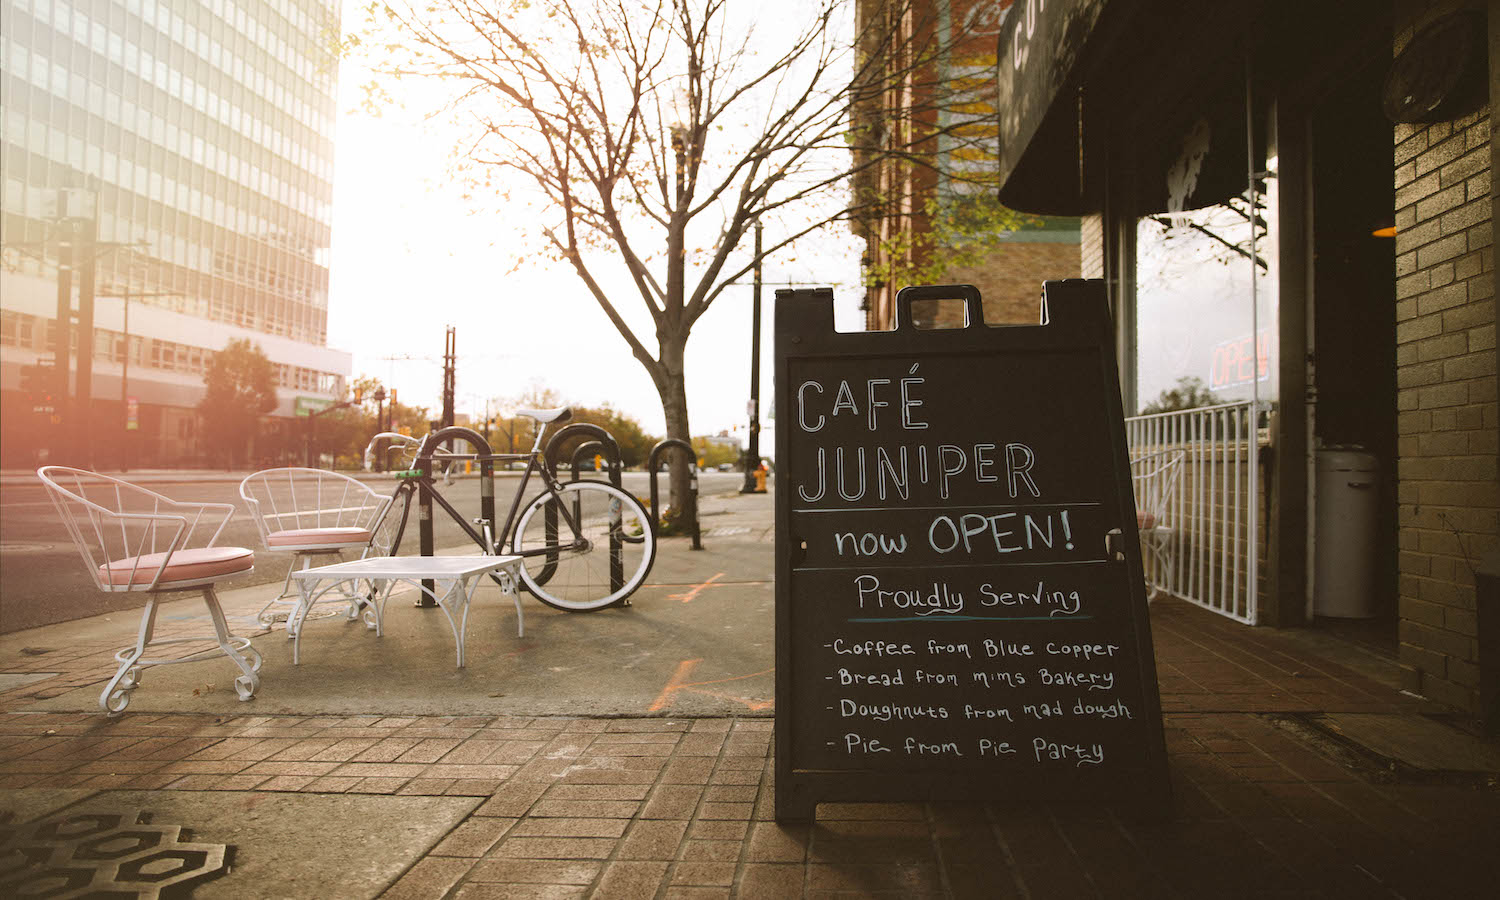 CAFÉ
JUNIPER
now OPEN!
Proudly Serving
-Coffee from Blue Copper
-Bread from mims Bakery
-Doughnuts from mad dough
-Pie from Pie Party
OPEN